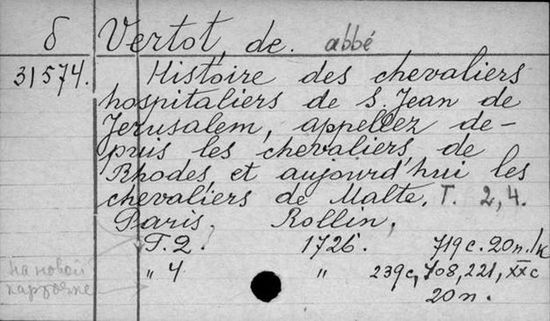 б Vertot, de. abbé
31574. Histoire des chevaliers
hospitaliers de S. Jean de
Jerusalem, appellez de-
puis les chevaliers de
Rhodes, et aujourd'hui les
chevaliers de Malte. T. 2, 4.
Paris, Rollin,
T. 2. 1726. 719 c. 20 п. 1 к
на новой
" 4 " 239 c, 708, 221, XX c
карточке
20 п.